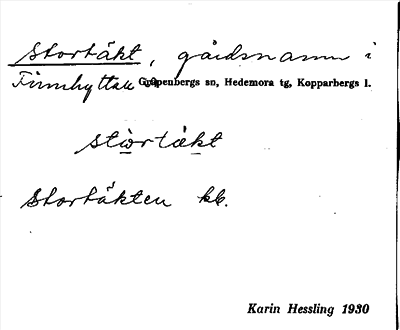 Stortäkt, gårdsnamn i
Finnhyttan Gustenbergs sn, Hedemora tg, Kopparbergs l.
stòrtäkt
Stortäkten kk.
Karin Hessling 1930